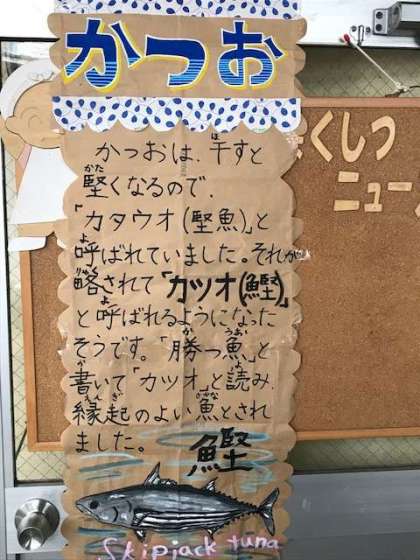 かつお
かつおは、干すと
堅くなるので、
「カタウオ(堅魚)」と
呼ばれていました。それが
略されて「カツオ(鰹)」
と呼ばれるようになった
そうです。「勝つ魚」と
書いて「カツオ」と読み、
縁起のよい魚とされ
ました。
鰹
Skipjack tuna
くしつ
ニュー